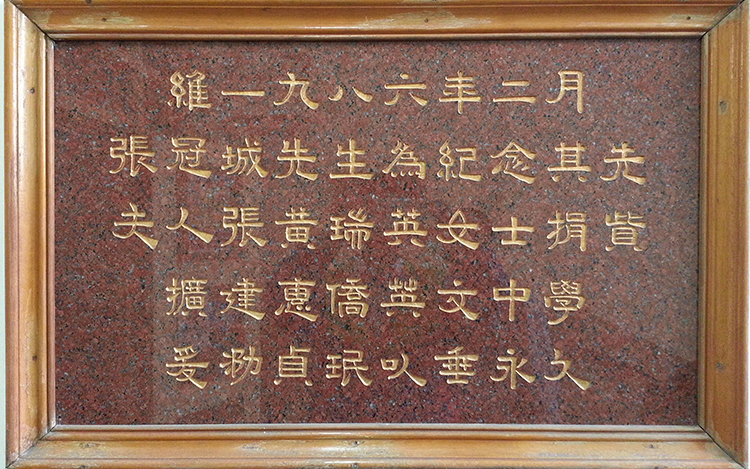 維一九八六年二月
張冠城先生為紀念其先
夫人張黃瑞英女士捐貲
擴建惠僑英文中學
爰泐貞珉以垂永久